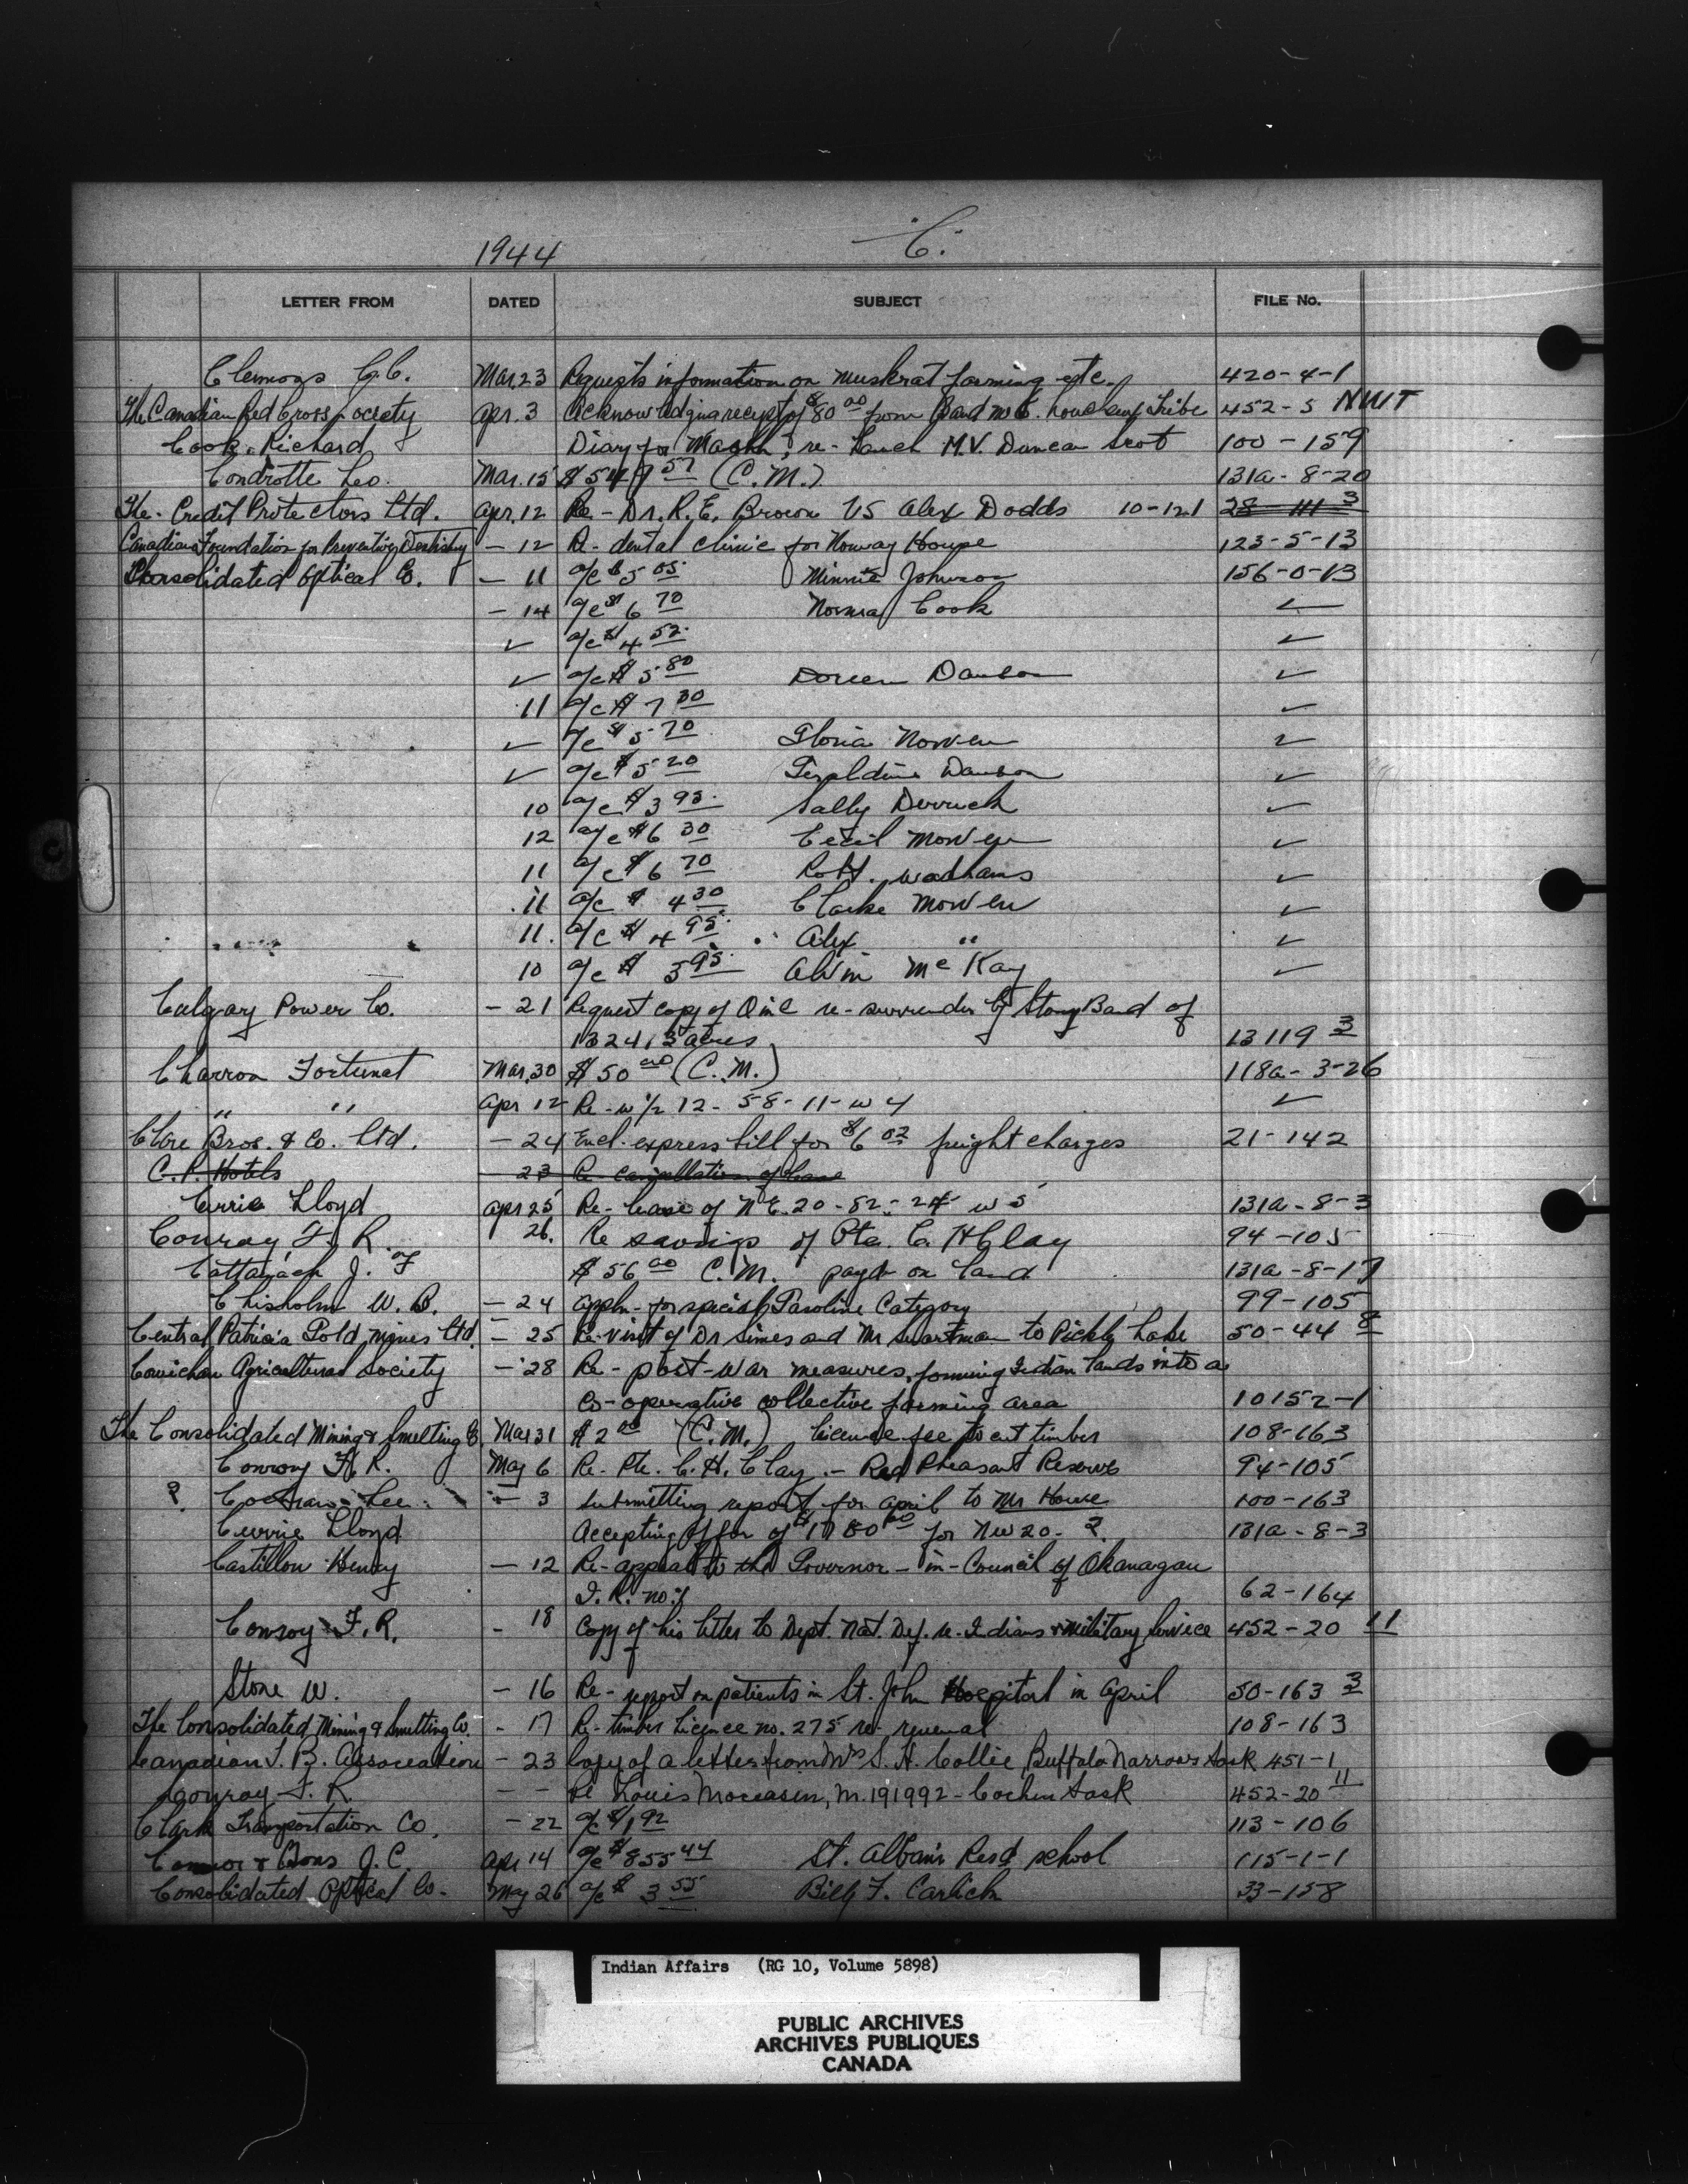 1944 "C."
LETTER FROM DATED SUBJECT FILE No.
Clemons C.C. Mar. 23 Requests information on muskrat farming etc. 420-4-1
The Canadian Red Cross Society Apr. 3 Acknowledging receipt of $80 00 from Band 452-5 NWT
Cook, Richard Diary for March; re- launch M.V. Duncan Scot 100-159
Condrotte Leo. Mar. 15 57 (C.M.) 131a-8-20
The Credit Protectors Ltd. Apr. 12 Re- Dr. R.E. Brown VS Alex Dodds 10-121 28-111 3
Canadian Foundation for Preventive Dentistry - 12 Re- dental clinic for Norway House 123-5-13
Consolidated Optical Co. - 11 a/c $5 05 Minnie Johnson 156-0-13
- 14 a/c $6 70 Norma Cook ✓
✓ a/c $4 52 ✓
✓ a/c $5 80 Doreen Dawson ✓
11 a/c $7 30 ✓
✓ a/c $5 70 Gloria Morven ✓
✓ a/c $5 20 Geraldine Dawson ✓
10 a/c $3 95 Sally Derrick ✓
12 a/c $6 30 Cecil Morven ✓
11 a/c $6 70 Robt. ✓
11 a/c $4 30 Clarke Morven ✓
11. a/c $4 95 Alex " ✓
10 a/c $3 95 Alvin McKay ✓
Calgary Power Co. - 21 Request copy of O in C re- surrender by Stony Band of
acres 13119 3
Charron Fortunat Mar. 30 $50 00 (C.M.) 118a-3-26
" " Apr 12 Re- w 1/2 12-58-11-w4 ✓
Clare Bros. & Co. Ltd. - 24 Encl. express bill for $6 02 freight charges 21-142
C.P. Hotels - 23 Re cancellation of lease
Currie Lloyd Apr 25 Re- lease of N.E. 20-82-24 w5 131a-8-3
Conroy F. R. 26. Re savings of Pte. C. H Clay 94-105
Cattanach J. $56 00 C.M. payt on land 131a-8-17
Chisholm W. B. - 24 Appln- for special Gasoline Category 99-105
Central Patricia Gold Mines Ltd. - 25 Re- visit of Dr Simes and Mr Swartman to Pickle Lake 50-44 8
Cowichan Agricultural Society - 28 Re- post-war measures, forming Indian lands into a
co-operative collective farming area 10152-1
The Consolidated Mining & Smelting Co. Mar 31 $2 00 (C.M.) licence fee to cut timber 108-163
Conroy F. R. May 6 Re- Pte. C. H. Clay - Red Pheasant Reserve 94-105
? Lee - 3 Submitting report for April to Mr Howe 100-163
Currie Lloyd Accepting offer of for NW 20-? 131a-8-3
Castillon Henry - 12 Re- appeal to the Governor-in-Council of Okanagan
I.R. no. 1 62-164
Conroy F. R. - 18 Copy of his letter to Dept. Nat. Def. re- Indians & military service 452-20 11
Stone W. - 16 Re- report on patients in St. John Hospital in April 50-163 3
The Consolidated Mining & Smelting Co. - 17 Re- timber licence no. 275 re- renewal 108-163
Canadian T. B. Association - 23 Copy of a letter from Mrs S. H. Collie, Buffalo Narrows Sask 451-1
Conroy F. R. - - Re Louis Moccasin, M.191992 - Cochin Sask 452-20 11
Clark Transportation Co. - 22 a/c $1 92 113-106
Connor & Sons J. C. Apr 14 a/c $855 44 St. Alban's Resd. school 115-1-1
Consolidated Optical Co. May 26 a/c $3 55 Billy F. Carlick 33-158
Indian Affairs (RG 10, Volume 5898)
PUBLIC ARCHIVES
ARCHIVES PUBLIQUES
CANADA